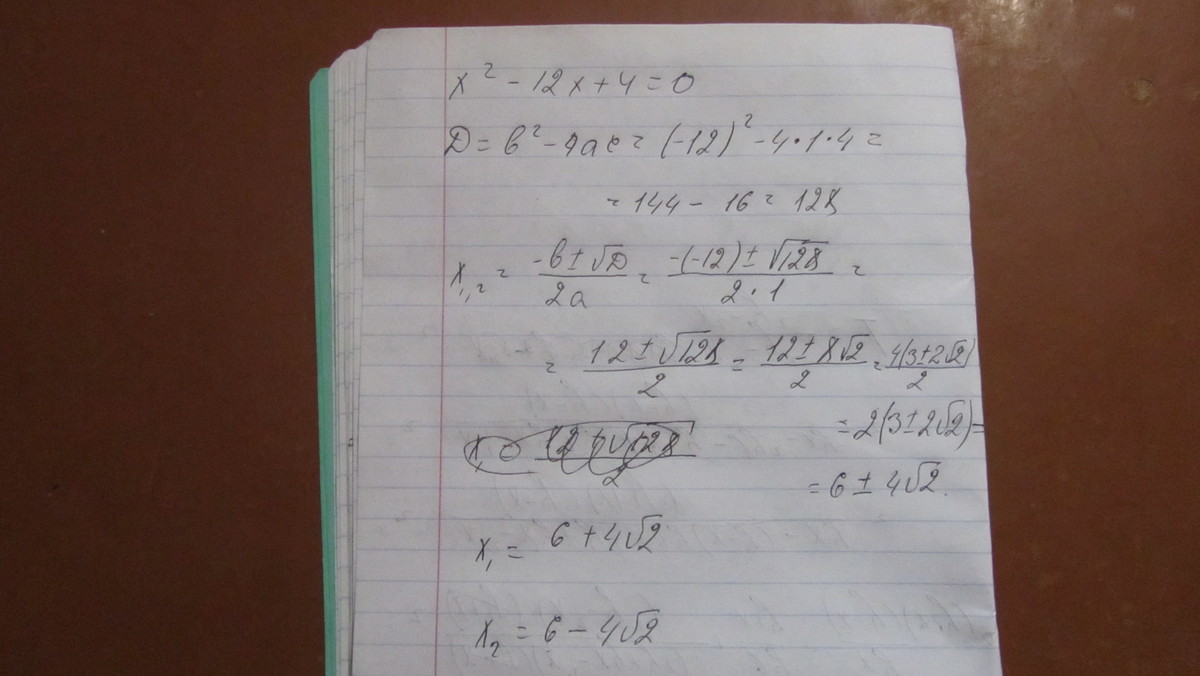 x² - 12x + 4 = 0
D = b² - 4ac = (-12)² - 4·1·4 =
= 144 - 16 = 128
x₁,₂ = (-b ± √D)/(2a) = (-(-12) ± √128)/(2·1) =
= (12 ± √128)/2 = (12 ± 8√2)/2 = 4(3 ± 2√2)/2
= 2(3 ± 2√2) =
= 6 ± 4√2.
x₁ = 6 + 4√2
x₂ = 6 - 4√2